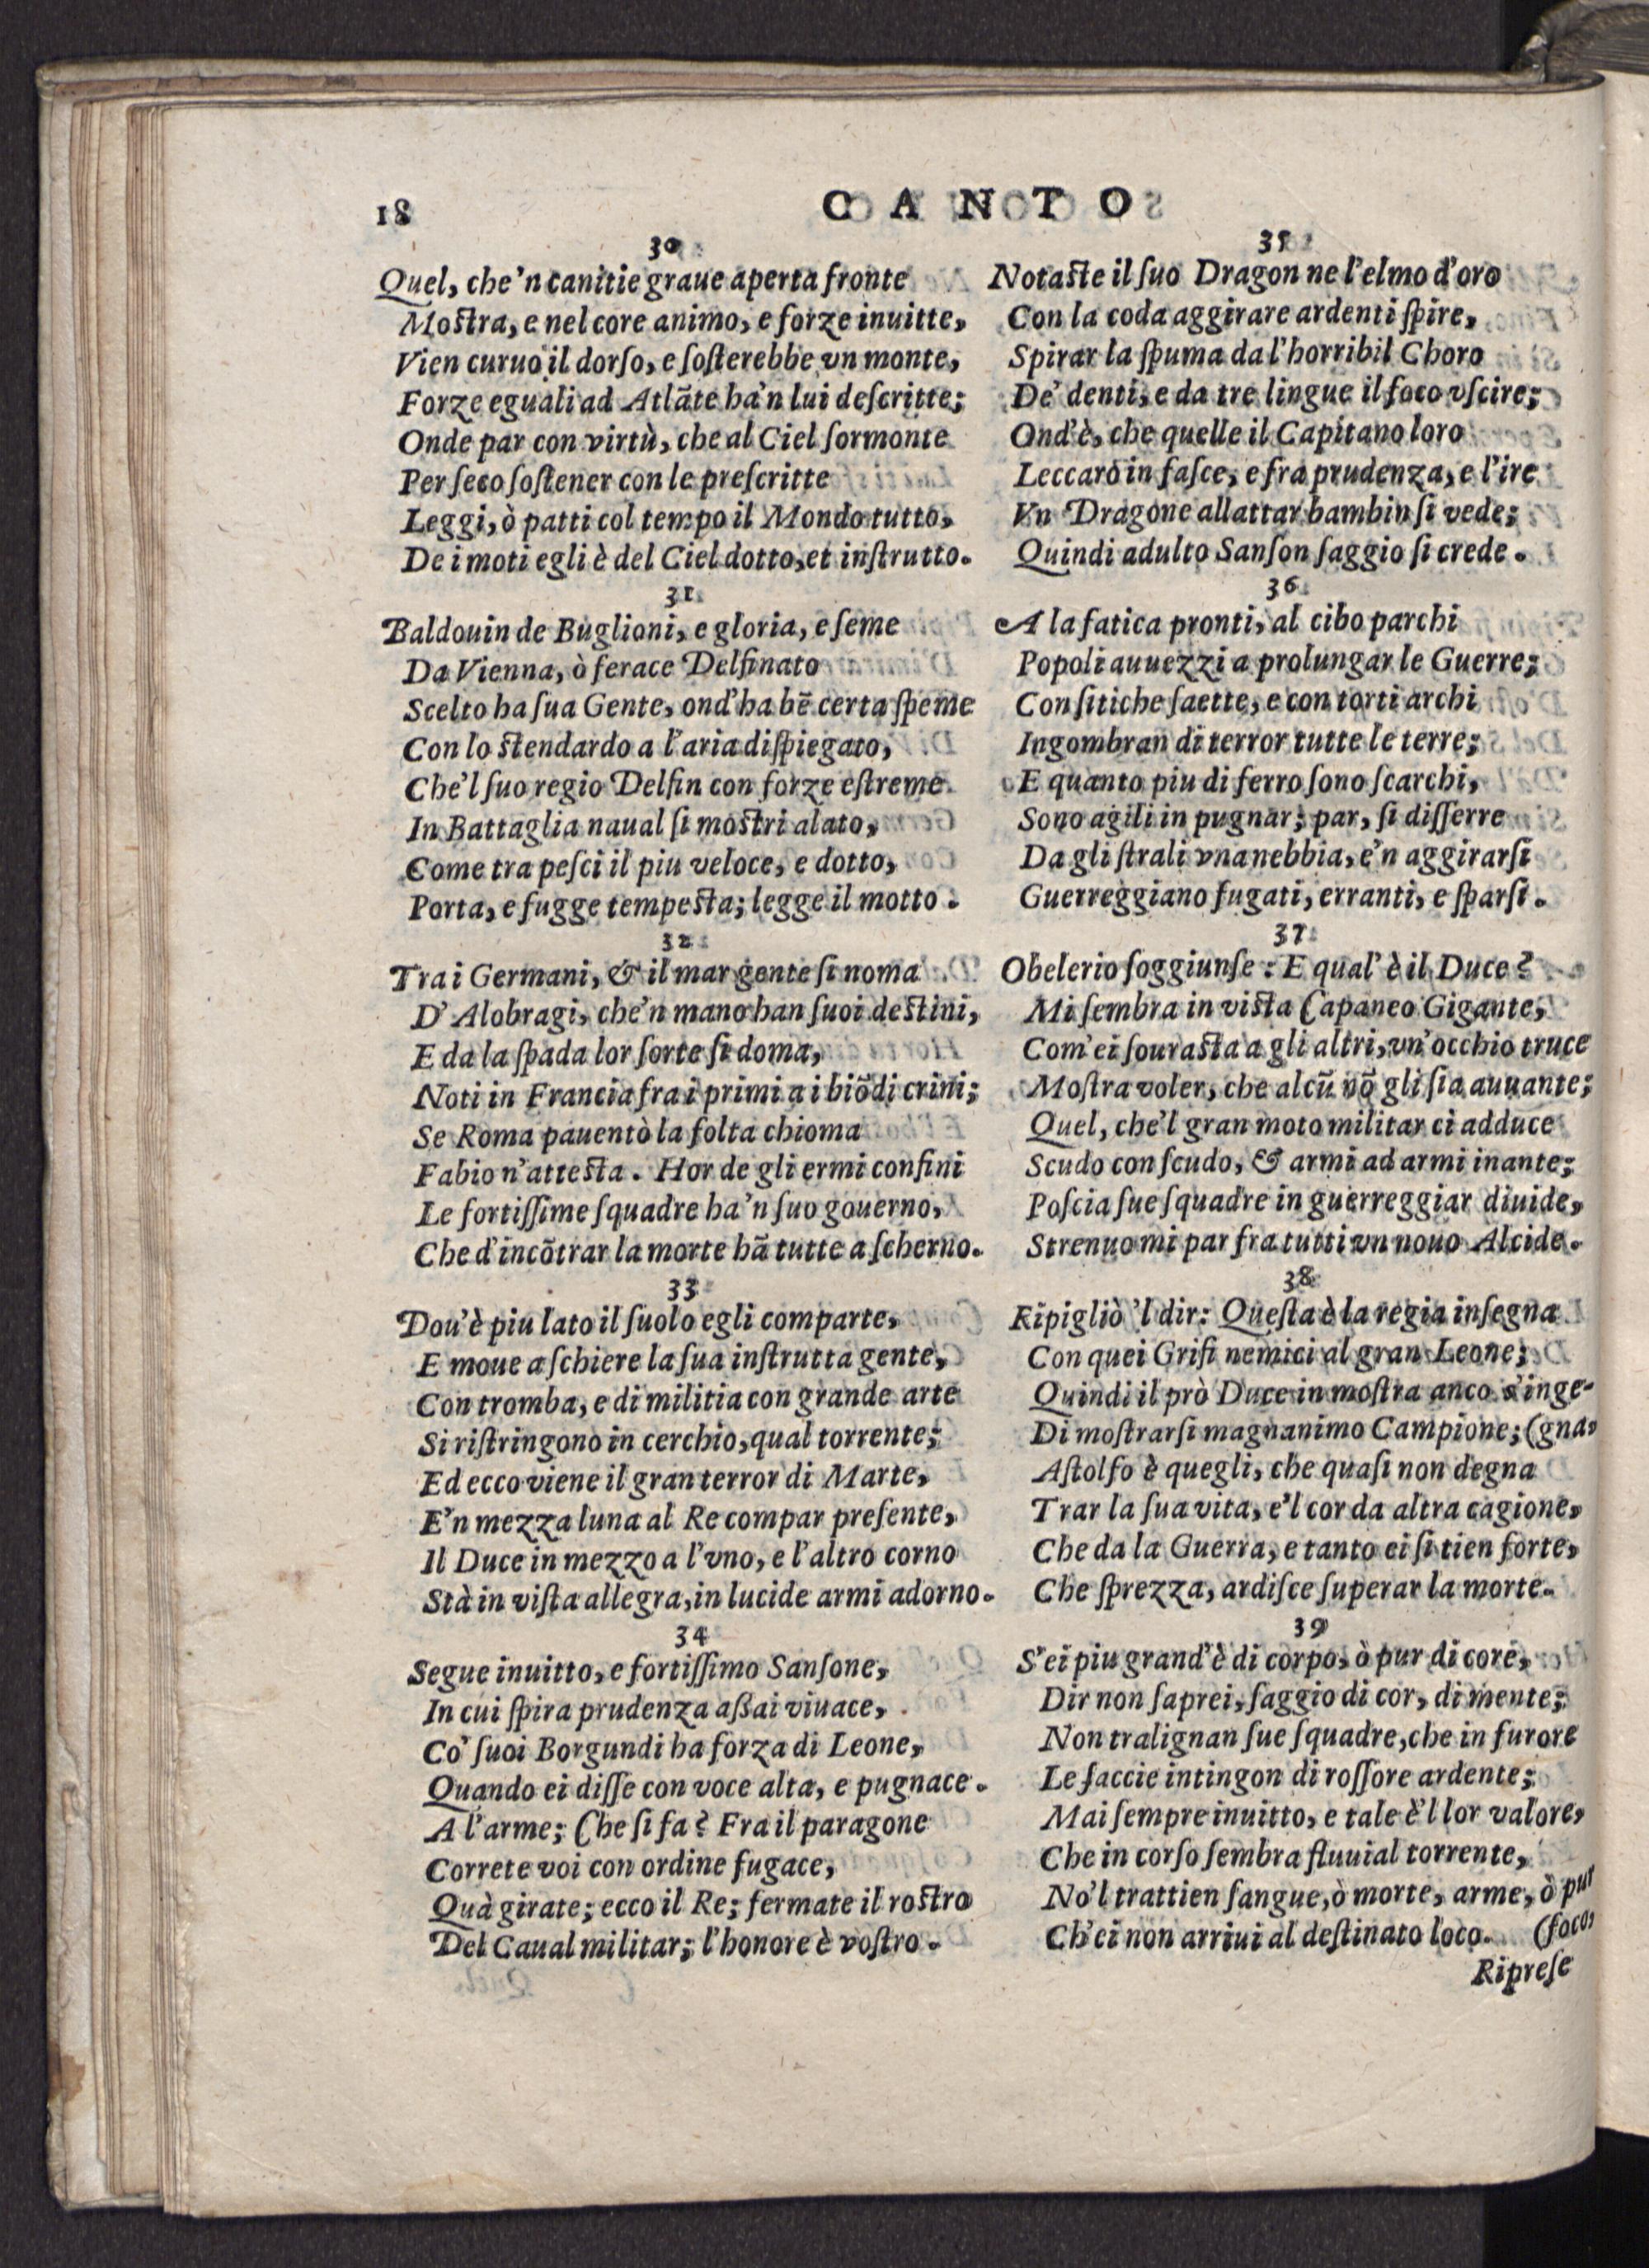 18
CANTO
30
Quel, che'n canitie graue aperta fronte
Moſtra, e nel core animo, e forze inuitte,
Vien curuo il dorſo, e ſoſterebbe vn monte,
Forze eguali ad Atlāte ha'n lui deſcritte;
Onde par con virtù, che al Ciel ſormonte
Per ſeco ſoſtener con le preſcritte
Leggi, ò patti col tempo il Mondo tutto,
De i moti egli è del Ciel dotto, et inſtrutto.
31
Baldouin de Buglioni, e gloria, e ſeme
Da Vienna, ò ferace Delfinato
Scelto ha ſua Gente, ond'ha bē certa ſpeme
Con lo ſtendardo a l'aria diſpiegato,
Che'l ſuo regio Delfin con forze eſtreme
In Battaglia naual ſi moſtri alato,
Come tra peſci il piu veloce, e dotto,
Porta, e fugge tempeſta; legge il motto.
32
Tra i Germani, & il mar gente ſi noma
D'Alobragi, che'n mano han ſuoi deſtini,
E da la ſpada lor ſorte ſi doma,
Noti in Francia fra i primi a i biōdi crini;
Se Roma pauentò la folta chioma
Fabio n'atteſta. Hor de gli ermi confini
Le fortiſſime ſquadre ha'n ſuo gouerno,
Che d'incōtrar la morte hā tutte a ſcherno.
33
Dou'è piu lato il ſuolo egli comparte,
E moue a ſchiere la ſua inſtrutta gente,
Con tromba, e di militia con grande arte
Si riſtringono in cerchio, qual torrente;
Ed ecco viene il gran terror di Marte,
E'n mezza luna al Re compar preſente,
Il Duce in mezzo a l'vno, e l'altro corno
Stà in viſta allegra, in lucide armi adorno.
34
Segue inuitto, e fortiſſimo Sanſone,
In cui ſpira prudenza aſsai viuace,
Co' ſuoi Borgundi ha forza di Leone,
Quando ei diſſe con voce alta, e pugnace.
A l'arme; Che ſi fa? Fra il paragone
Correte voi con ordine fugace,
Quà girate; ecco il Re; fermate il roſtro
Del Caual militar; l'honore è voſtro.
35
Notaſte il ſuo Dragon ne l'elmo d'oro
Con la coda aggirare ardenti ſpire,
Spirar la ſpuma da l'horribil Choro
De' denti, e da tre lingue il foco vſcire;
Ond'è, che quelle il Capitano loro
Leccarò in faſce, e fra prudenza, e l'ire
Vn Dragone allattar bambin ſi vede;
Quindi adulto Sanſon ſaggio ſi crede.
36
A la fatica pronti, al cibo parchi
Popoli auuezzi a prolungar le Guerre;
Con ſitiche ſaette, e con torti archi
Ingombran di terror tutte le terre;
E quanto piu di ferro ſono ſcarchi,
Sono agili in pugnar; par, ſi diſſerre
Da gli ſtrali vna nebbia, e'n aggirarſi
Guerreggiano fugati, erranti, e ſparſi.
37
Obelerio ſoggiunſe: E qual'è il Duce?
Mi ſembra in viſta Capaneo Gigante,
Com'ei ſouraſta a gli altri, vn'occhio truce
Moſtra voler, che alcū nō gli ſia auuante;
Quel, che'l gran moto militar ci adduce
Scudo con ſcudo, & armi ad armi inante;
Poſcia ſue ſquadre in guerreggiar diuide,
Strenuo mi par fra tutti vn nouo Alcide.
38
Ripigliò 'l dir: Queſta è la regia inſegna
Con quei Grifi nemici al gran Leone;
Quindi il prò Duce in moſtra anco s'inge-
Di moſtrarſi magnanimo Campione; (gna,
Aſtolfo è quegli, che quaſi non degna
Trar la ſua vita, e'l cor da altra cagione,
Che da la Guerra, e tanto ei ſi tien forte,
Che ſprezza, ardiſce ſuperar la morte.
39
S'ei piu grand'è di corpo, ò pur di core,
Dir non ſaprei, ſaggio di cor, di mente;
Non tralignan ſue ſquadre, che in furore
Le faccie intingon di roſſore ardente;
Mai ſempre inuitto, e tale è'l lor valore,
Che in corſo ſembra fluuial torrente,
No'l trattien ſangue, ò morte, arme, ò pur
Ch'ei non arriui al deſtinato loco. (foco,
Ripreſe